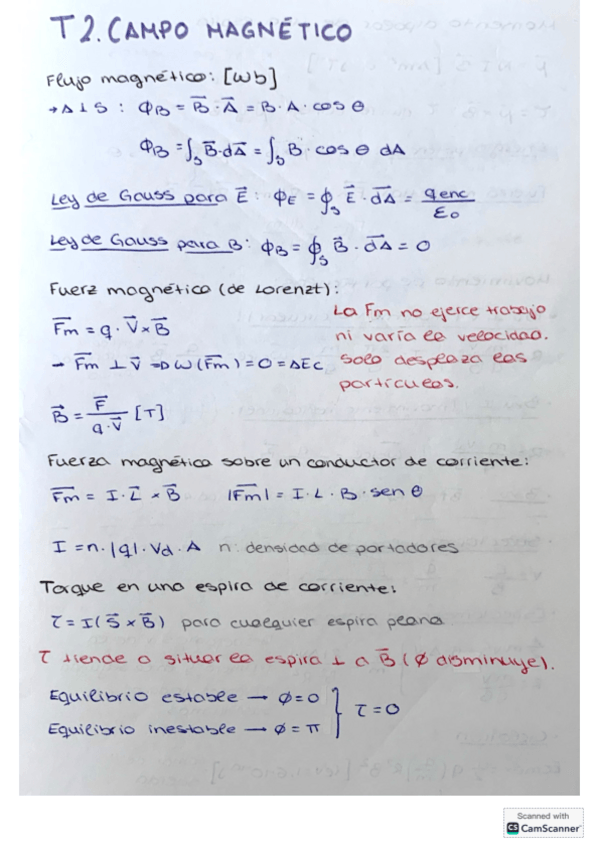 T2. CAMPO MAGNÉTICO
Flujo magnético: [Wb]
→ A ⊥ S : ϕB = B⃗ · A⃗ = B · A · cos θ
ϕB = ∫s B⃗ · dA⃗ = ∫s B · cos θ dA
Ley de Gauss para E⃗ : ϕE = ∮s E⃗ · dA⃗ = qenc/ε0
Ley de Gauss para B: ϕB = ∮s B⃗ · dA⃗ = 0
Fuerz magnético (de Lorenzt):
Fm⃗ = q · V⃗ × B⃗
→ Fm⃗ ⊥ V⃗ ⇒ W(Fm⃗) = 0 = ΔEc
La Fm no ejerce trabajo
ni varía la velocidad.
Solo desplaza las
partículas.
B⃗ = F⃗/(q · V⃗) [T]
Fuerza magnética sobre un conductor de corriente:
Fm⃗ = I · L⃗ × B⃗ |Fm⃗| = I · L · B · sen θ
I = n · |q| · Vd · A n: densidad de portadores
Torque en una espira de corriente:
τ = I(S⃗ × B⃗) para cualquier espira plana
τ tiende a situar la espira ⊥ a B⃗ (ϕ disminuye).
Equilibrio estable → ϕ = 0 } τ = 0
Equilibrio inestable → ϕ = π
Scanned with
CS CamScanner